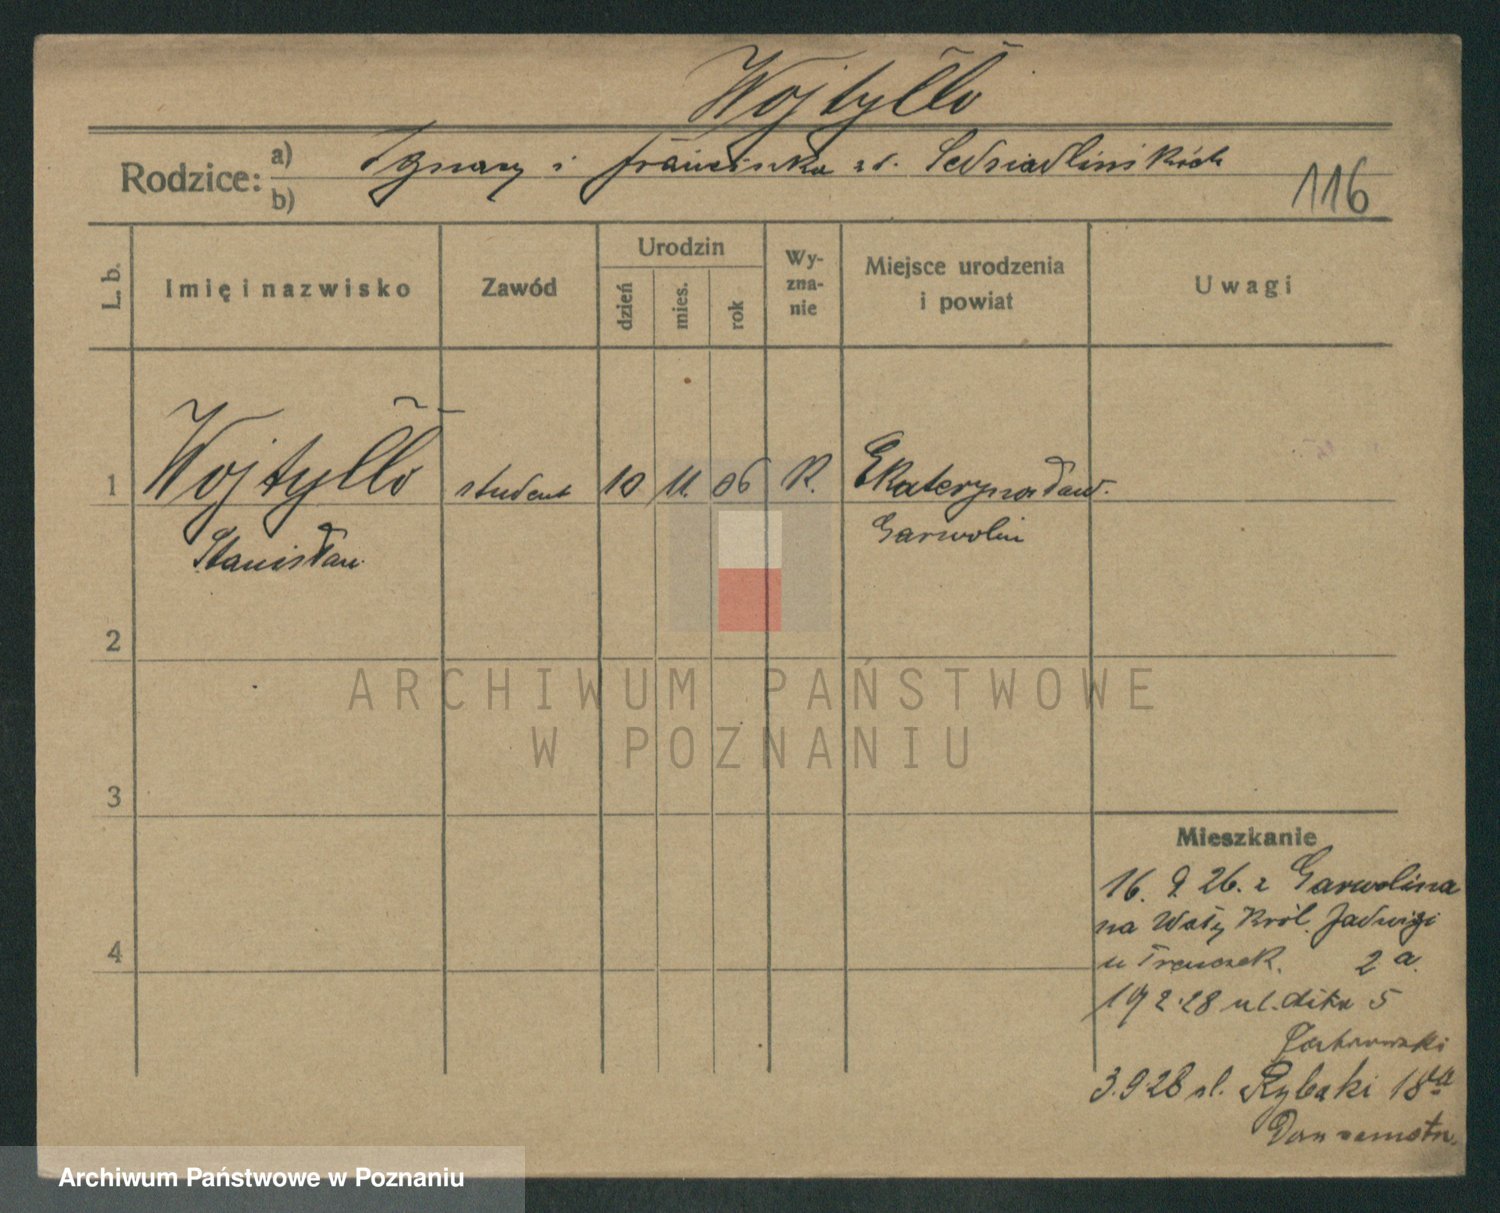 Wojtyłło
Rodzice: a) Ignacy i Franciszka z d.
b)
116
L. b.
Imię i nazwisko
Zawód
Urodzin
dzień
mies.
rok
Wy-
zna-
nie
Miejsce urodzenia
i powiat
Uwagi
1 Wojtyłło student 10 11. 06 R. Ekaterynosław.
Stanisław Garwolin
2
ARCHIWUM PAŃSTWOWE
W POZNANIU
3
Mieszkanie
16. 9. 26. z Garwolina
na Wały Król. Jadwigi
4
u 2 a.
19 2.28 ul. 5
3.9 28 ul. Rybaki 18
Archiwum Państwowe w Poznaniu